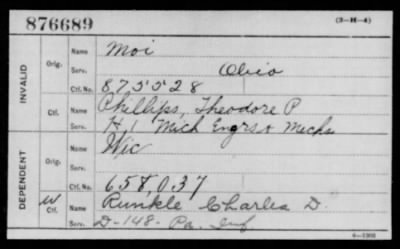 876689 (3-H-4)
INVALID Orig. Name Moi
Serv. Ohio
Ctf. No. 875528
Ctf. Name Phillips, Theodore P
Serv. H, 1 Mich Engrs & Mechs
DEPENDENT Orig. Name Wic
Serv.
Ctf. No. 658,037
W Ctf. Name Runkle Charles D.
Serv. D-148- Pa. Inf